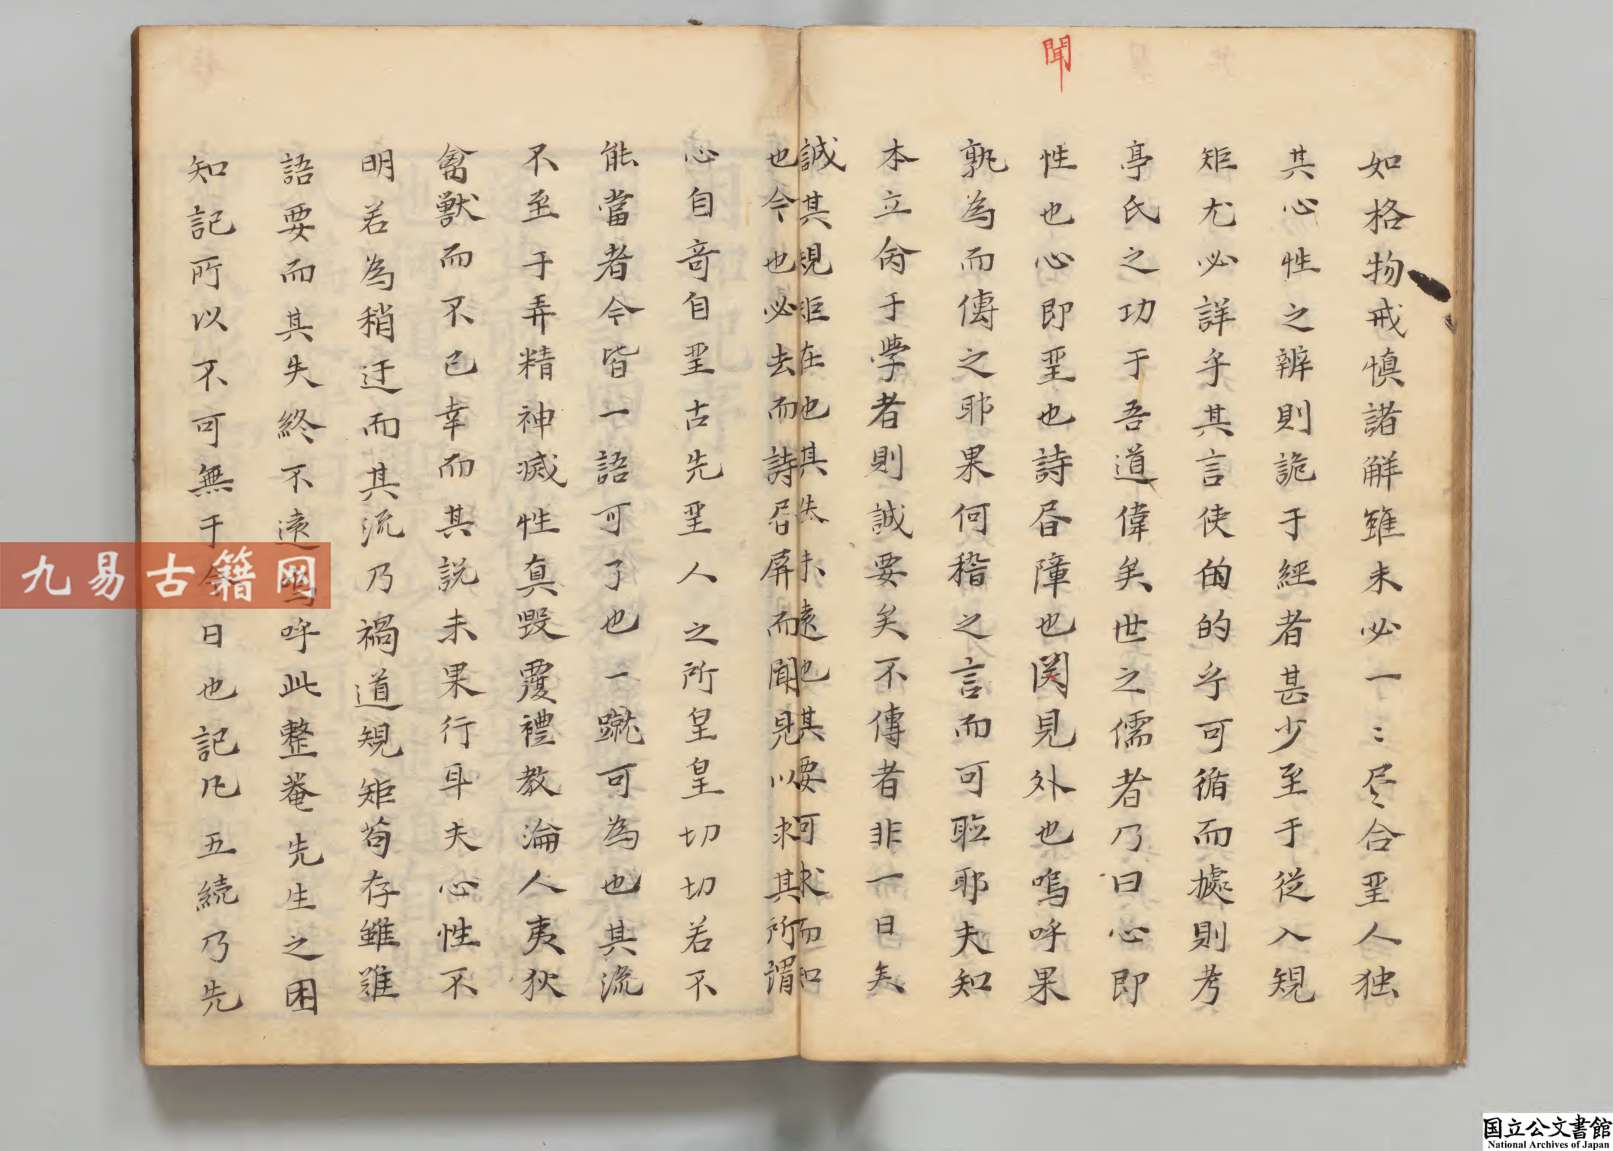 聞
如格物戒慎諸解雖未必一〻尽合聖人独
其心性之辨則詭于經者甚少至于從入規
矩尤必詳乎其言使的的乎可循而據則考
亭氏之功于吾道偉矣世之儒者乃曰心即
性也心即聖也詩書障也関見外也嗚呼果
孰為而傳之耶果何稽之言而可聖耶夫知
本立向于學者則誠要矣不傳者非一日矣
誠其規矩在也其失未遠也其要可求而知
也今也必去而詩書屏而聞見以求其所謂
心自奇自聖古先聖人之所皇皇切切若不
能當者今皆一語可了也一蹴可為也其流
不至于弄精神滅性真毀覆禮教淪人夷狄
禽獸而不已幸而其説未果行耳夫心性不
明若為稍迂而其流乃禍道規矩苟存雖誰
語要而其失終不遠嗚呼此整菴先生之困
知記所以不可無于今日也記凡五続乃先
九易古籍网
国立公文書館
National Archives of Japan